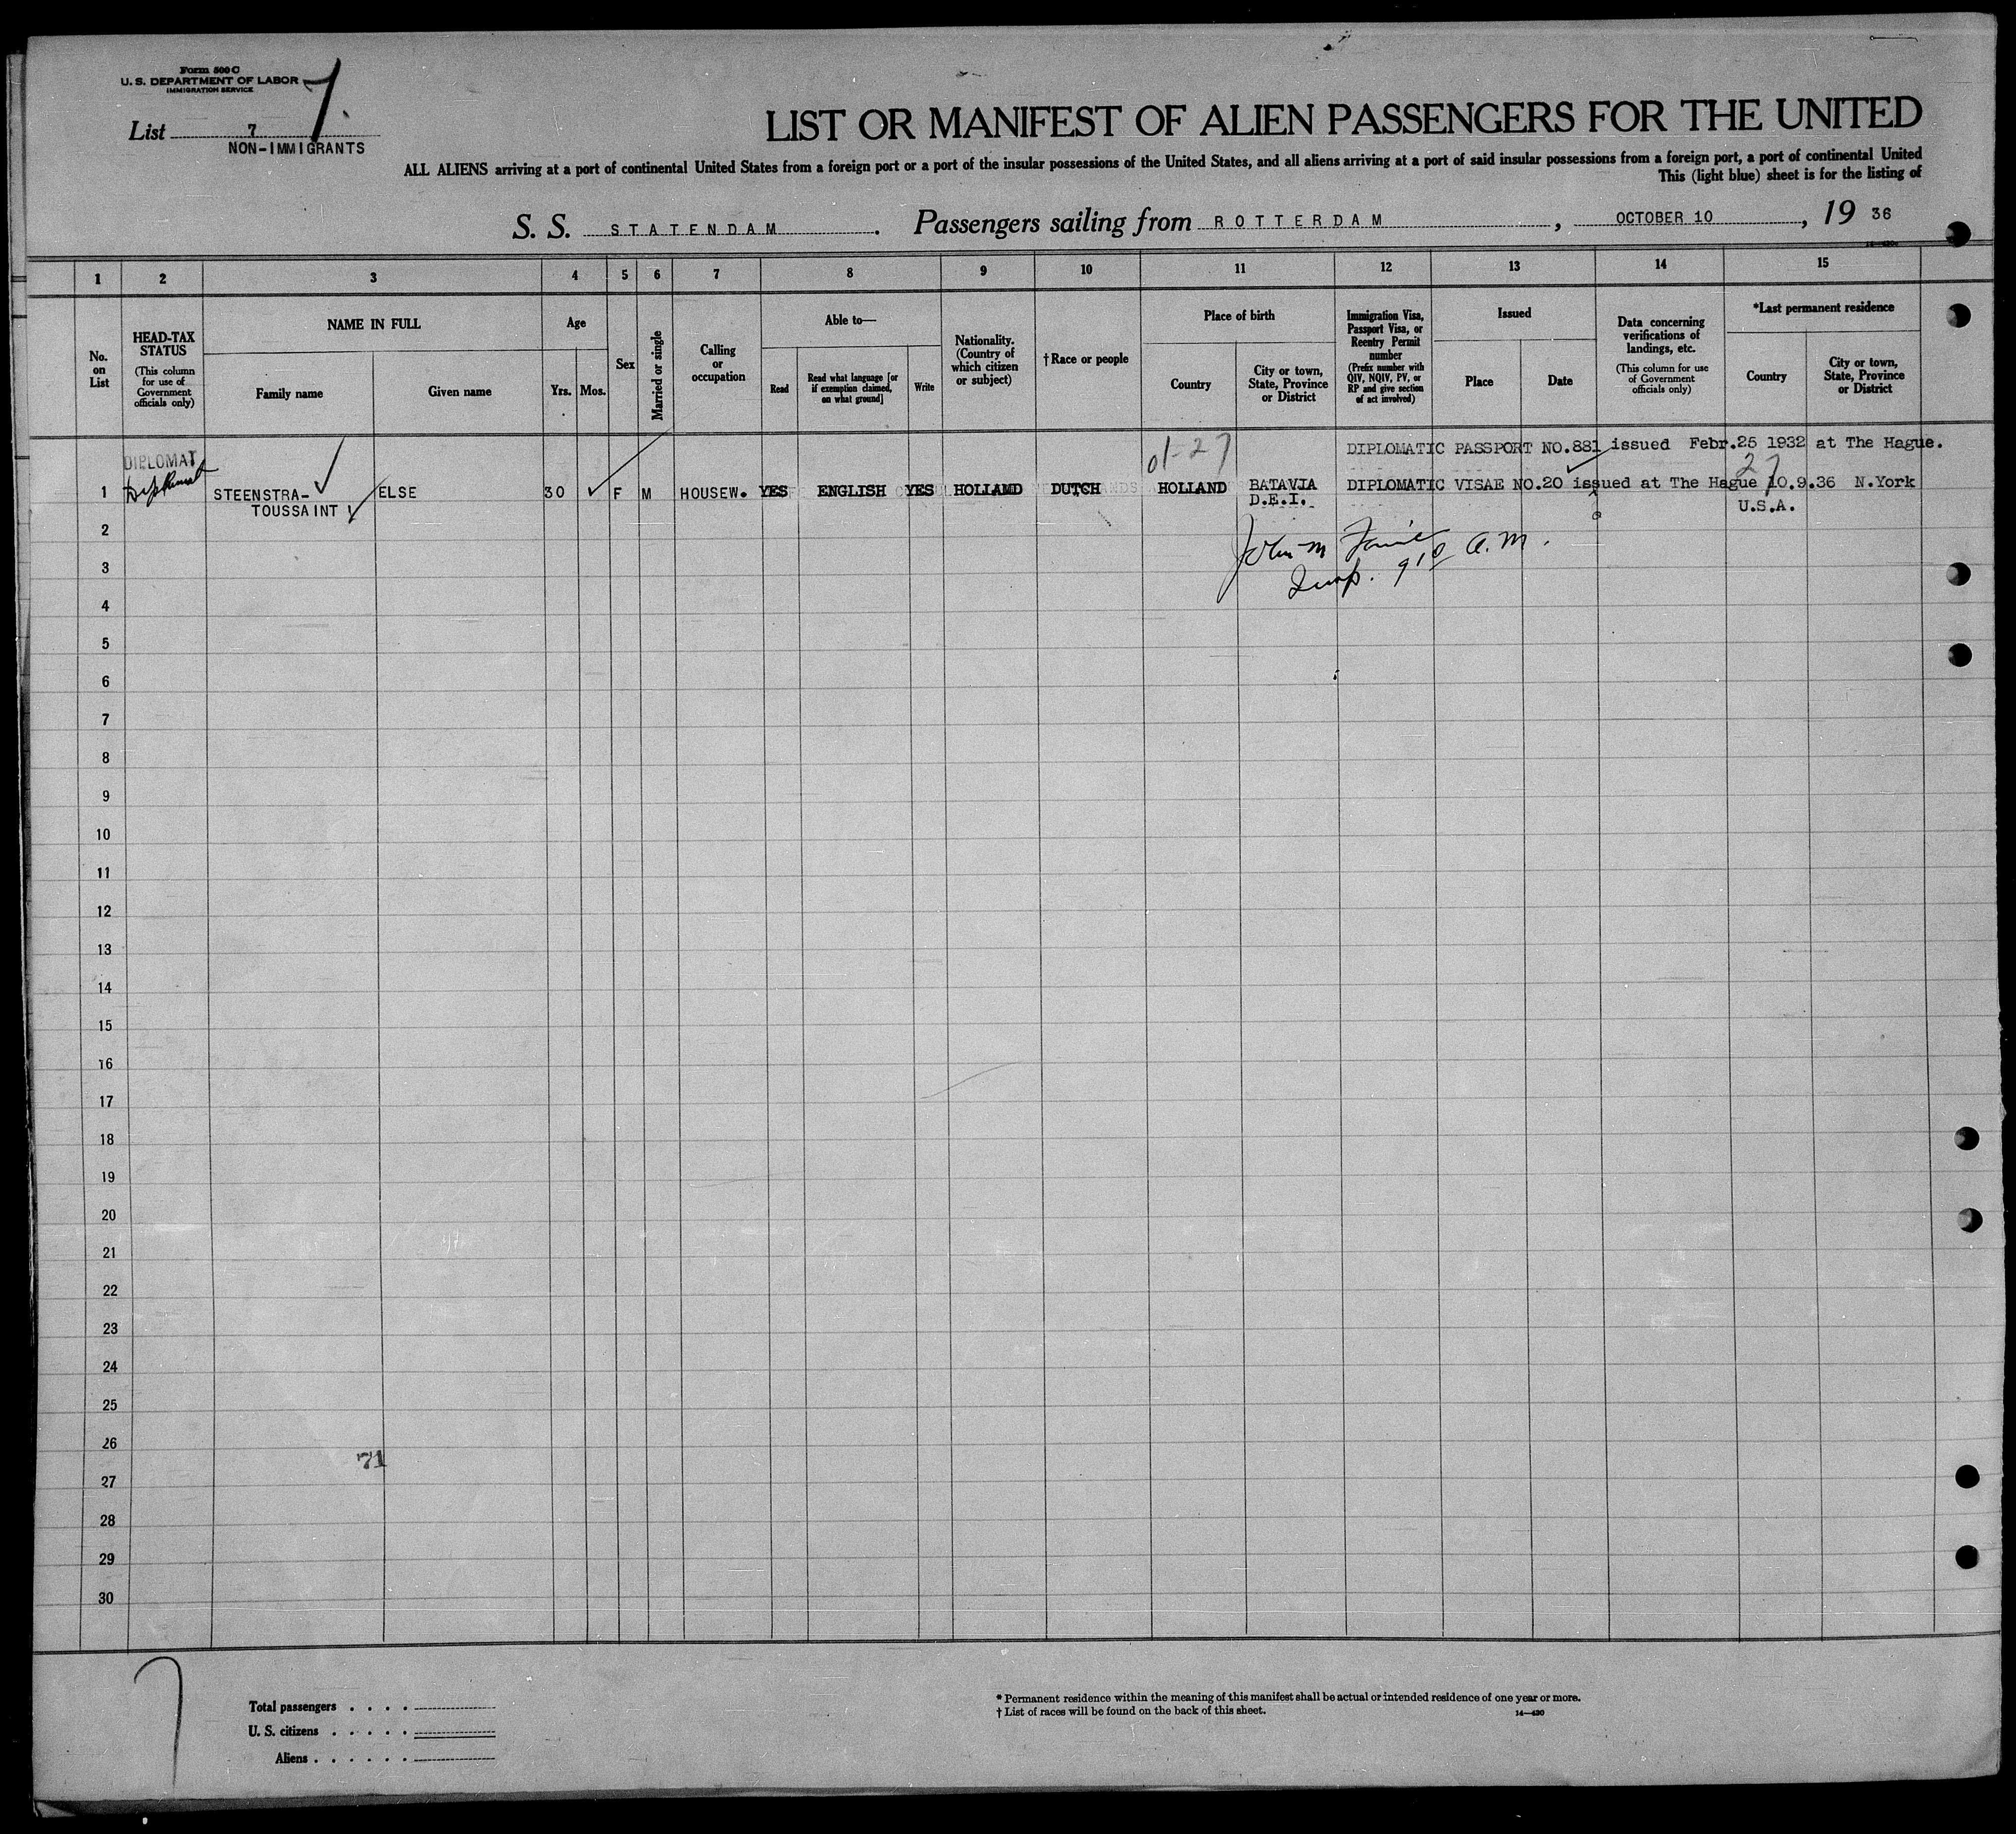 Form 500 C
U. S. DEPARTMENT OF LABOR
IMMIGRATION SERVICE
7.
List 7
NON-IMMIGRANTS
LIST OR MANIFEST OF ALIEN PASSENGERS FOR THE UNITED
ALL ALIENS arriving at a port of continental United States from a foreign port or a port of the insular possessions of the United States, and all aliens arriving at a port of said insular possessions from a foreign port, a port of continental United
This (light blue) sheet is for the listing of
S. S. STATENDAM. Passengers sailing from ROTTERDAM, OCTOBER 10, 19 36
1 2 3 4 5 6 7 8 9 10 11 12 13 14 15
No. on List
HEAD-TAX STATUS (This column for use of Government officials only)
NAME IN FULL
Family name
Given name
Age
Yrs.
Mos.
Sex
Married or single
Calling or occupation
Able to—
Read
Read what language [or if exemption claimed, on what ground]
Write
Nationality. (Country of which citizen or subject)
† Race or people
Place of birth
Country
City or town, State, Province or District
Immigration Visa, Passport Visa, or Reentry Permit number (Prefix number with QIV, NQIV, PV, or RP and give section of act involved)
Issued
Place
Date
Data concerning verifications of landings, etc. (This column for use of Government officials only)
*Last permanent residence
Country
City or town, State, Province or District
DIPLOMAT 01-27 DIPLOMATIC PASSPORT NO.881 issued Febr.25 1932 at The Hague.
Diplomat
27
1 STEENSTRA- ELSE 30 F M HOUSEW. YES ENGLISH YES HOLLAND DUTCH HOLLAND BATAVIA DIPLOMATIC VISAE NO.20 issued at The Hague 10.9.36 N.York
TOUSSAINT D.E.I. U.S.A.
2
John M
A.M.
3
Insp. 9 10
4
5
6
7
8
9
10
11
12
13
14
15
16
17
18
19
20
21
22
23
24
25
26
71
27
28
29
30
7
Total passengers . . . .
U. S. citizens . . . . .
Aliens . . . . . .
* Permanent residence within the meaning of this manifest shall be actual or intended residence of one year or more.
† List of races will be found on the back of this sheet.
14—430